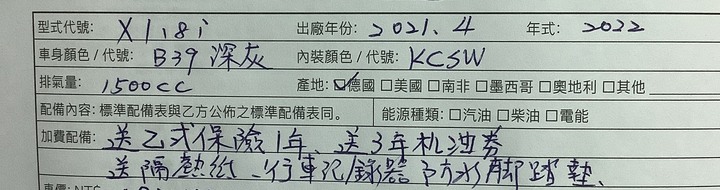 型式代號: X1 18i 出廠年份: 2021.4 年式: 2022
車身顏色/代號: B39 深灰 內裝顏色/代號: KCSW
排氣量: 1500cc 產地: ☑德國 □美國 □南非 □墨西哥 □奧地利 □其他
配備內容: 標準配備表與乙方公佈之標準配備表同。 能源種類: □汽油 □柴油 □電能
加費配備: 送乙式保險1年、送3年机油券
送隔熱紙、行車記錄器、防水腳踏墊、
車價: NT$